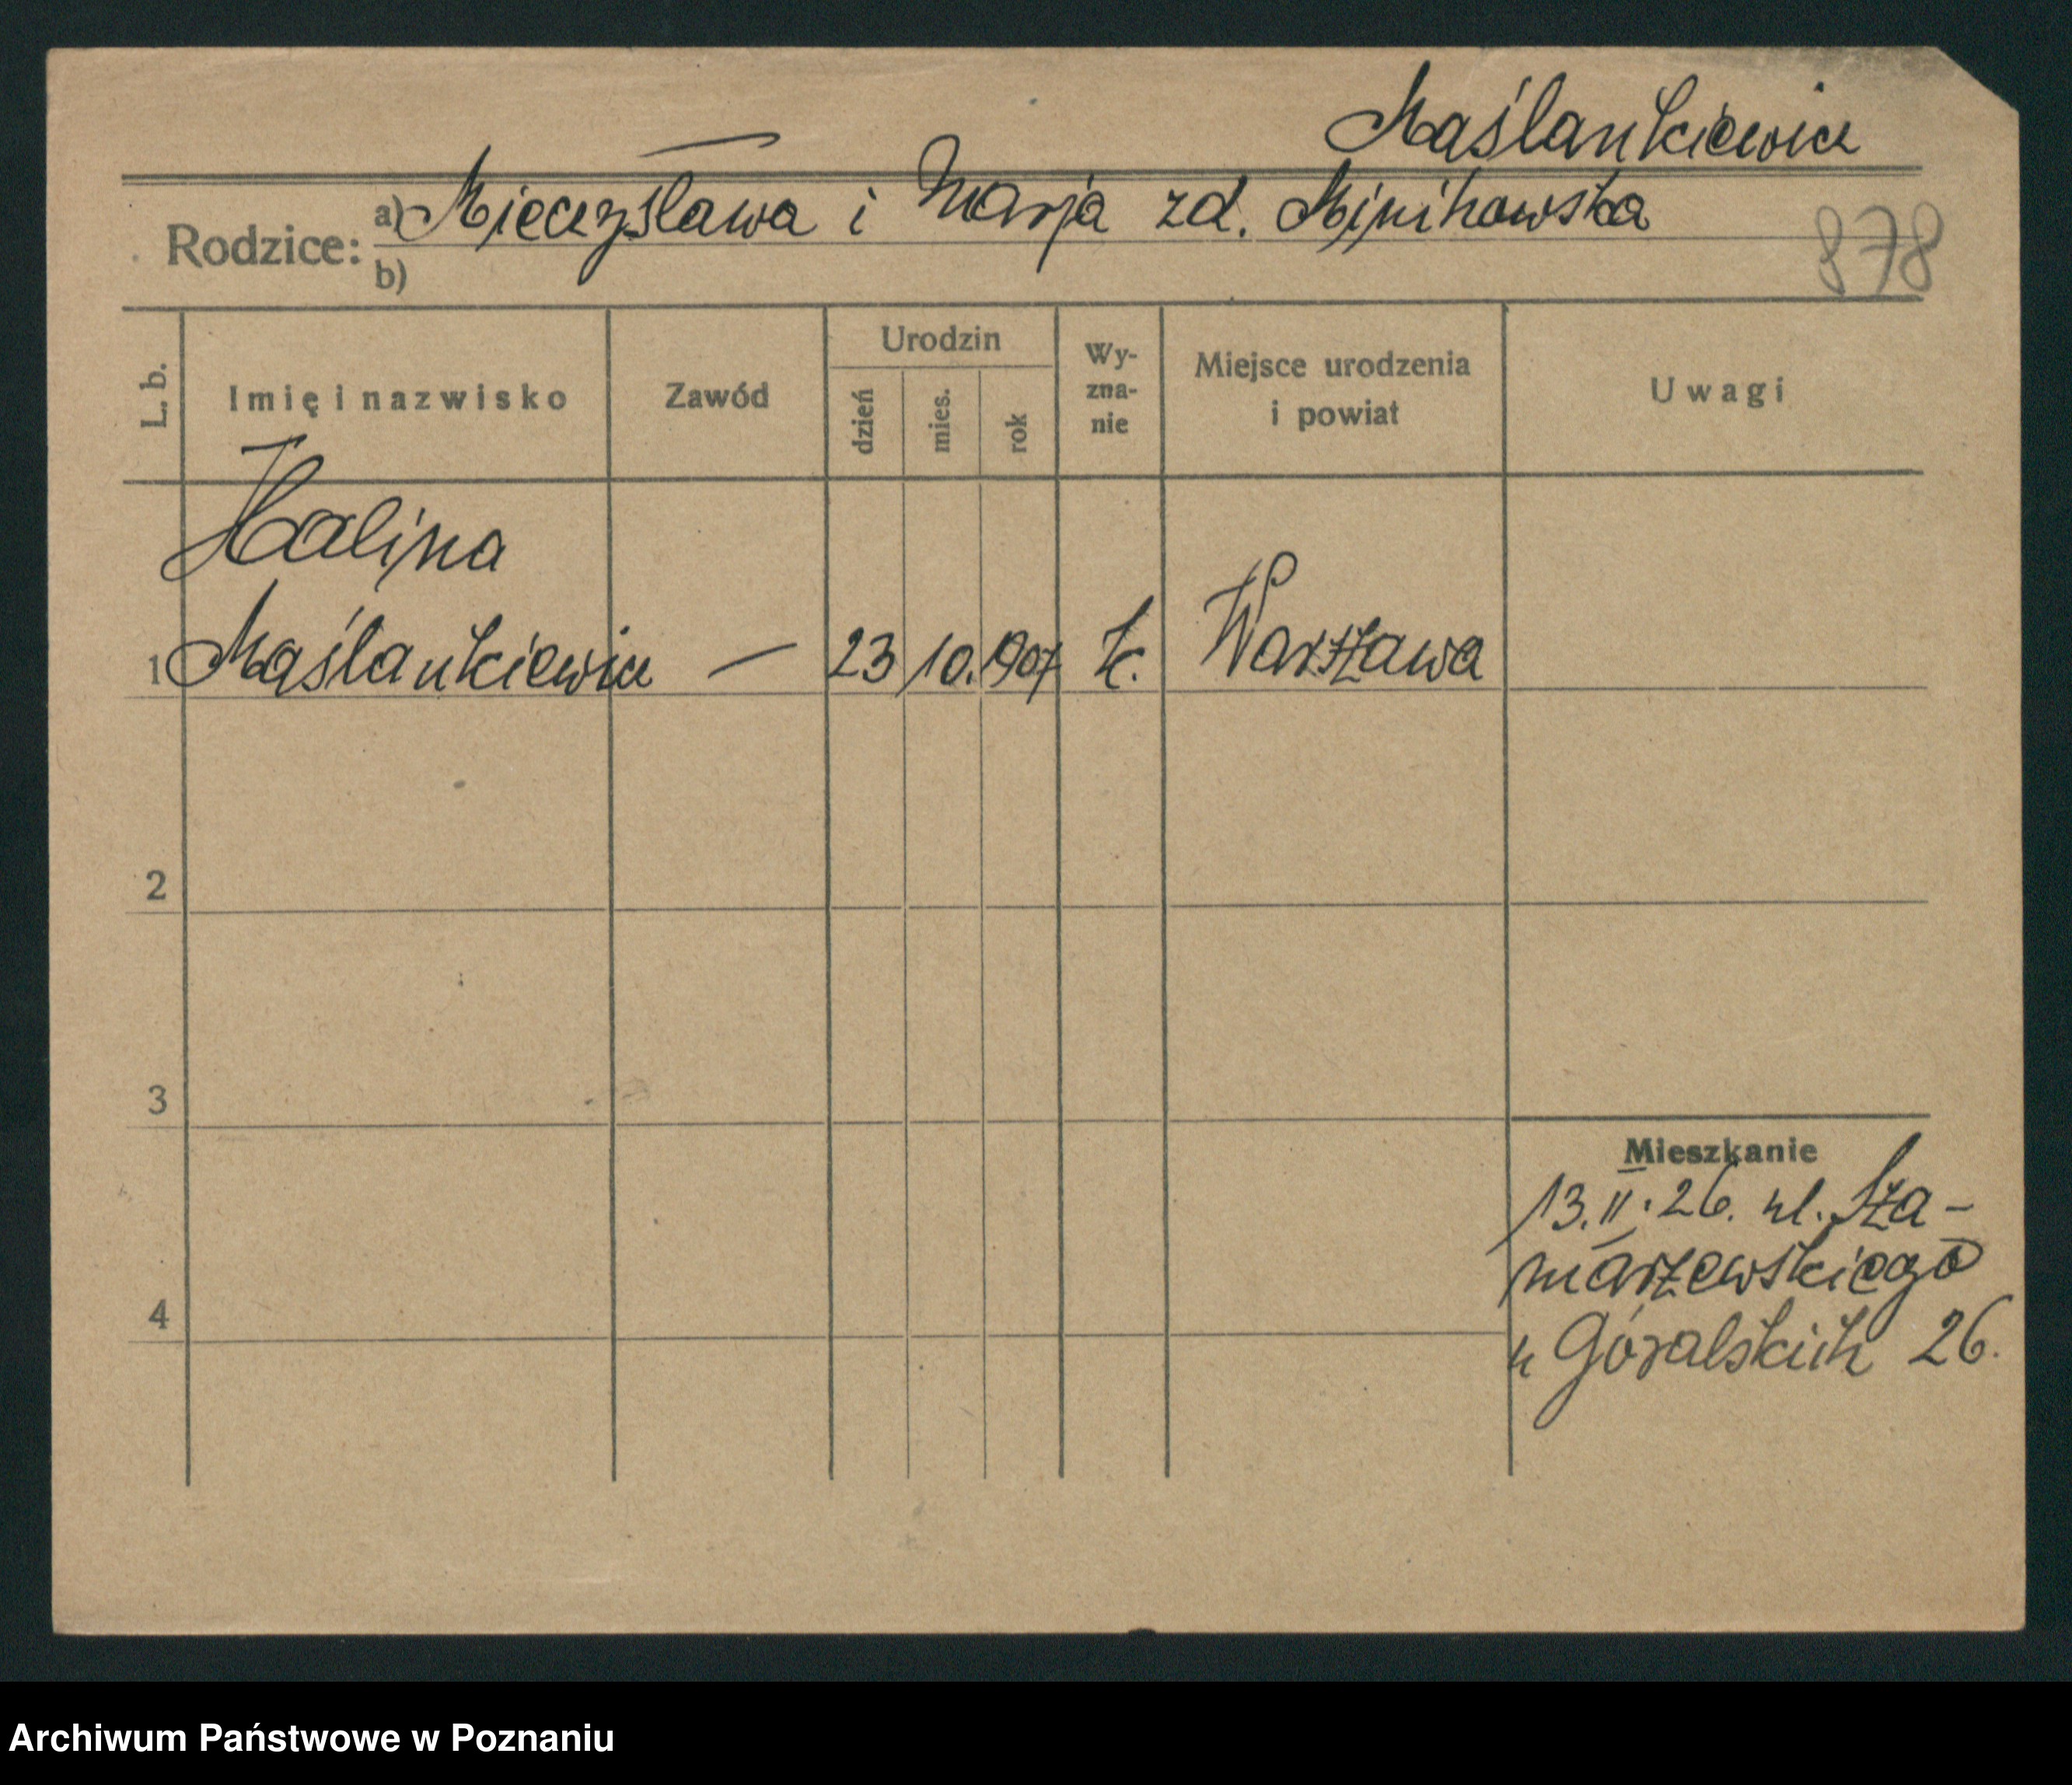 Maślankiewicz
Rodzice: a) Mieczysława i Marja zd.
b)
878
L. b.
Imię i nazwisko
Zawód
Urodzin
dzień
mies.
rok
Wy-
zna-
nie
Miejsce urodzenia
i powiat
Uwagi
Halina
1 Maślankiewicz — 23 10. 1907 k. Warszawa
2
3
4
Mieszkanie
13.II.26. ul. Sza-
marzewskiego
u Góralskich 26.
Archiwum Państwowe w Poznaniu